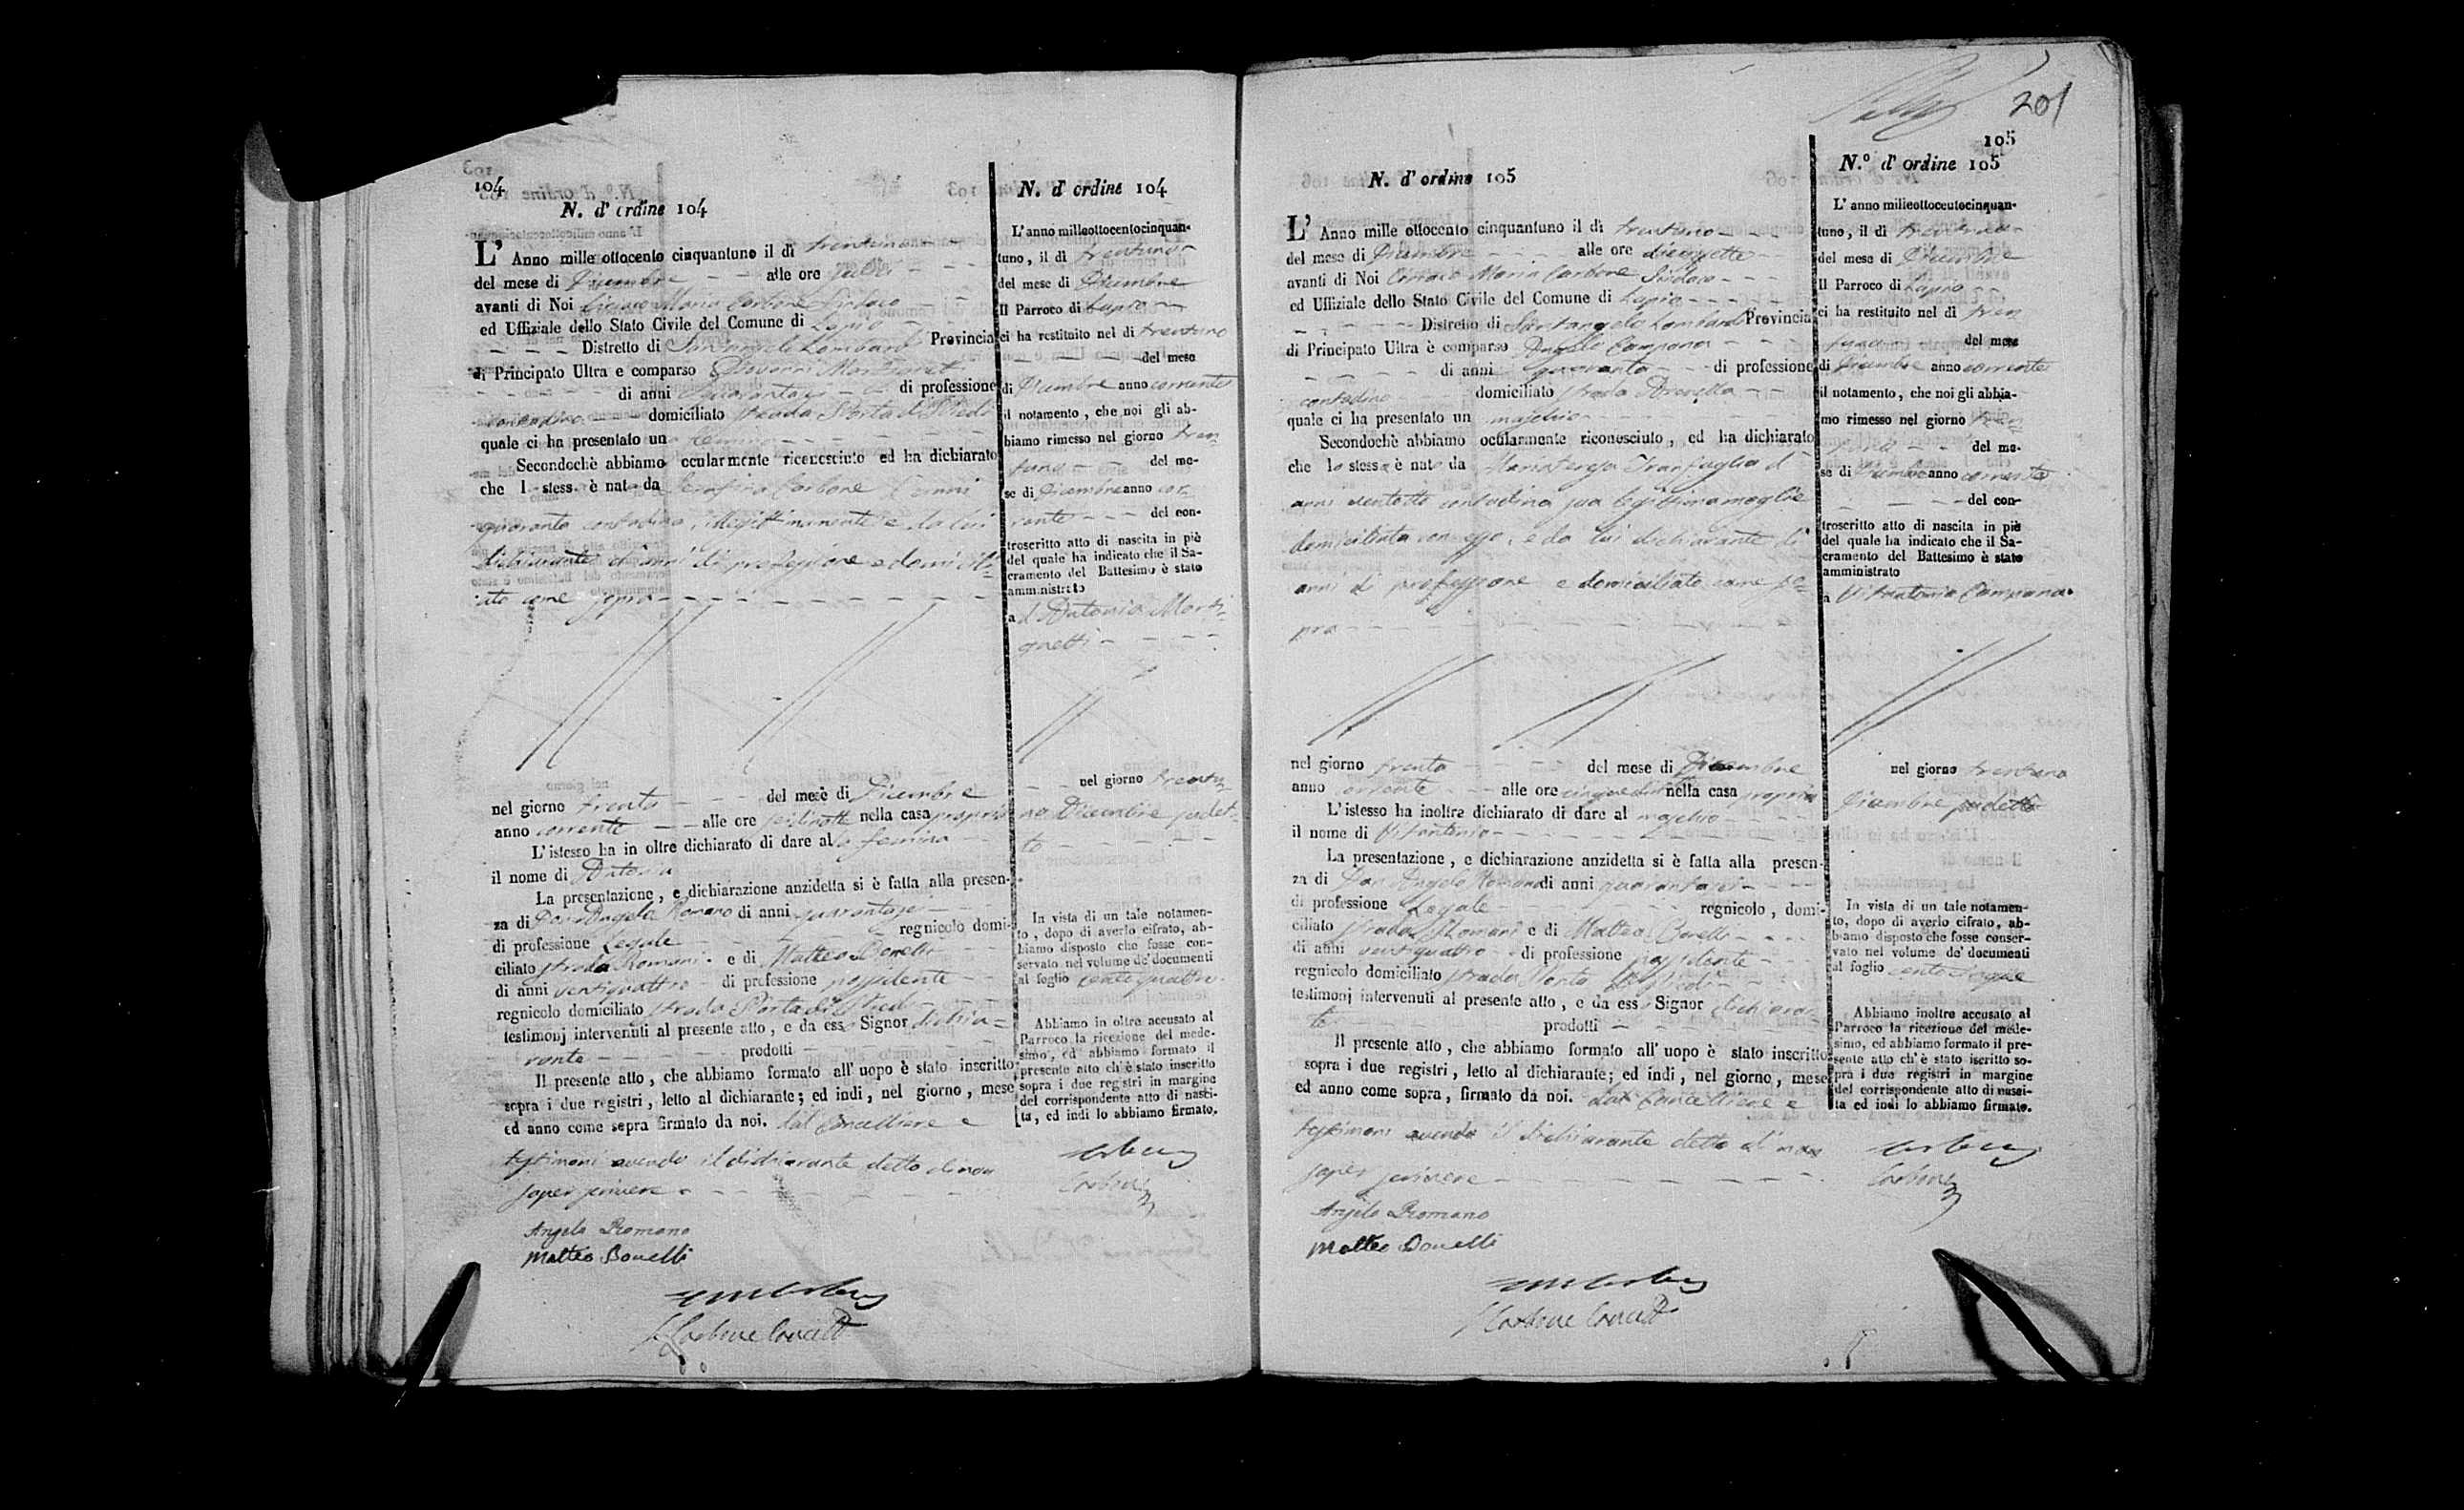 104
N. d' ordine 104
L' Anno mille ottocento cinquantuno il di trentuno
del mese di Dicembre alle ore
avanti di Noi Ciriaco Maria Carbone Sindaco
ed Uffiziale dello Stato Civile del Comune di Lapio
Distretto di Santangelo Lombardi Provincia
di Principato Ultra e comparso Giovanni
di anni di professione
contadino domiciliato strada Porta di Piedi
quale ci ha presentato una femina
Secondochè abbiamo ocularmente riconosciuto ed ha dichiarato
che l stess. è nat da Serafina Carbone d'anni
quaranta contadina, illegittimamente e da lui
dichiarante di anni di professione e domicili-
ato come sopra
nel giorno trenta del mese di Dicembre
anno corrente alle ore nella casa propria
L' istesso ha in oltre dichiarato di dare alla femina
il nome di Antonia
La presentazione, e dichiarazione anzidetta si è fatta alla presen-
za di Don Angelo Romano di anni quarantasei
di professione Legale regnicolo domi-
ciliato strada Romani e di Matteo Bonelli
di anni ventiquattro di professione possidente
regnicolo domiciliato strada Porta di Piedi
testimonj intervenuti al presente atto, e da ess Signor dichia-
rante prodotti
Il presente atto, che abbiamo formato all' uopo è stato inscritto
sopra i due registri, letto al dichiarante; ed indi, nel giorno, mese
ed anno come sopra firmato da noi. dal Cancelliere e
testimoni avendo il dichiarante detto di non
saper scrivere
Angelo Romano
Matteo Bonelli
Carbone Canc.
N. d' ordine 104
L' anno milleottocentocinquan-
tuno, il di trentuno
del mese di Dicembre
Il Parroco di Lapio
ci ha restituito nel di trentuno
del mese
di Dicembre anno corrente
il notamento, che noi gli ab-
biamo rimesso nel giorno tren
tuno del me-
se di Dicembre anno cor-
rente del con-
troscritto atto di nascita in piè
del quale ha indicato che il Sa-
cramento del Battesimo è stato
amministrato
ad Antonia
nel giorno trentu-
no Dicembre sudet-
to
In vista di un tale notamen-
to, dopo di averlo cifrato, ab-
biamo disposto che fosse con-
servato nel volume de' documenti
al foglio centoquattro
Abbiamo in oltre accusato al
Parroco la ricezione del mede-
simo, ed abbiamo formato il
presente atto ch' è stato inscritto
sopra i due registri in margine
del corrispondente atto di nasci-
ta, ed indi lo abbiamo firmato.
Carbone
201
105
N. d' ordine 105
L' Anno mille ottocento cinquantuno il di trentuno
del mese di Dicembre alle ore diecisette
avanti di Noi Ciriaco Maria Carbone Sindaco
ed Uffiziale dello Stato Civile del Comune di Lapio
Distretto di Santangelo Lombardi Provincia
di Principato Ultra è comparso Angelo Campana
di anni quaranta di professione
contadino domiciliato strada
quale ci ha presentato un maschio
Secondochè abbiamo ocularmente riconosciuto, ed ha dichiarato
che lo stesso è nato da Mariateresa Tranfaglia d'
anni ventotto contadina sua legittima moglie
domiciliata con esso, e da lui dichiarante di
anni di professione e domiciliato come so-
pra
nel giorno trenta del mese di Dicembre
anno corrente alle ore nella casa propria
L' istesso ha inoltre dichiarato di dare al maschio
il nome di Vitantonio
La presentazione, e dichiarazione anzidetta si è fatta alla presen-
za di Don Angelo Romano di anni quarantasei
di professione Legale regnicolo, domi-
ciliato strada Romani e di Matteo Bonelli
di anni ventiquattro di professione possidente
regnicolo domiciliato strada Porta di Piedi
testimonj intervenuti al presente atto, e da ess Signor dichiaran-
te prodotti
Il presente atto, che abbiamo formato all' uopo è stato inscritto
sopra i due registri, letto al dichiarante; ed indi, nel giorno, mese
ed anno come sopra, firmato da noi. dal Cancelliere e
testimoni avendo il dichiarante detto di non
saper scrivere
Angelo Romano
Matteo Bonelli
Carbone Canc.
N.º d' ordine 105
L' anno milleottocentocinquan-
tuno, il di trentuno
del mese di Dicembre
Il Parroco di Lapio
ci ha restituito nel di tren
tuno del mese
di Dicembre anno corrente
il notamento, che noi gli abbia-
mo rimesso nel giorno tren-
tuno del me-
se di Dicembre anno corrente
del con-
troscritto atto di nascita in piè
del quale ha indicato che il Sa-
cramento del Battesimo è stato
amministrato
a Vitantonio Campana
nel giorno trentuno
Dicembre sudetto
In vista di un tale notamen-
to, dopo di averlo cifrato, ab-
biamo disposto che fosse conser-
vato nel volume de' documenti
al foglio centocinque
Abbiamo inoltre accusato al
Parroco la ricezione del mede-
simo, ed abbiamo formato il pre-
sente atto ch' è stato iscritto so-
pra i due registri in margine
del corrispondente atto di nasci-
ta ed indi lo abbiamo firmato.
Carbone